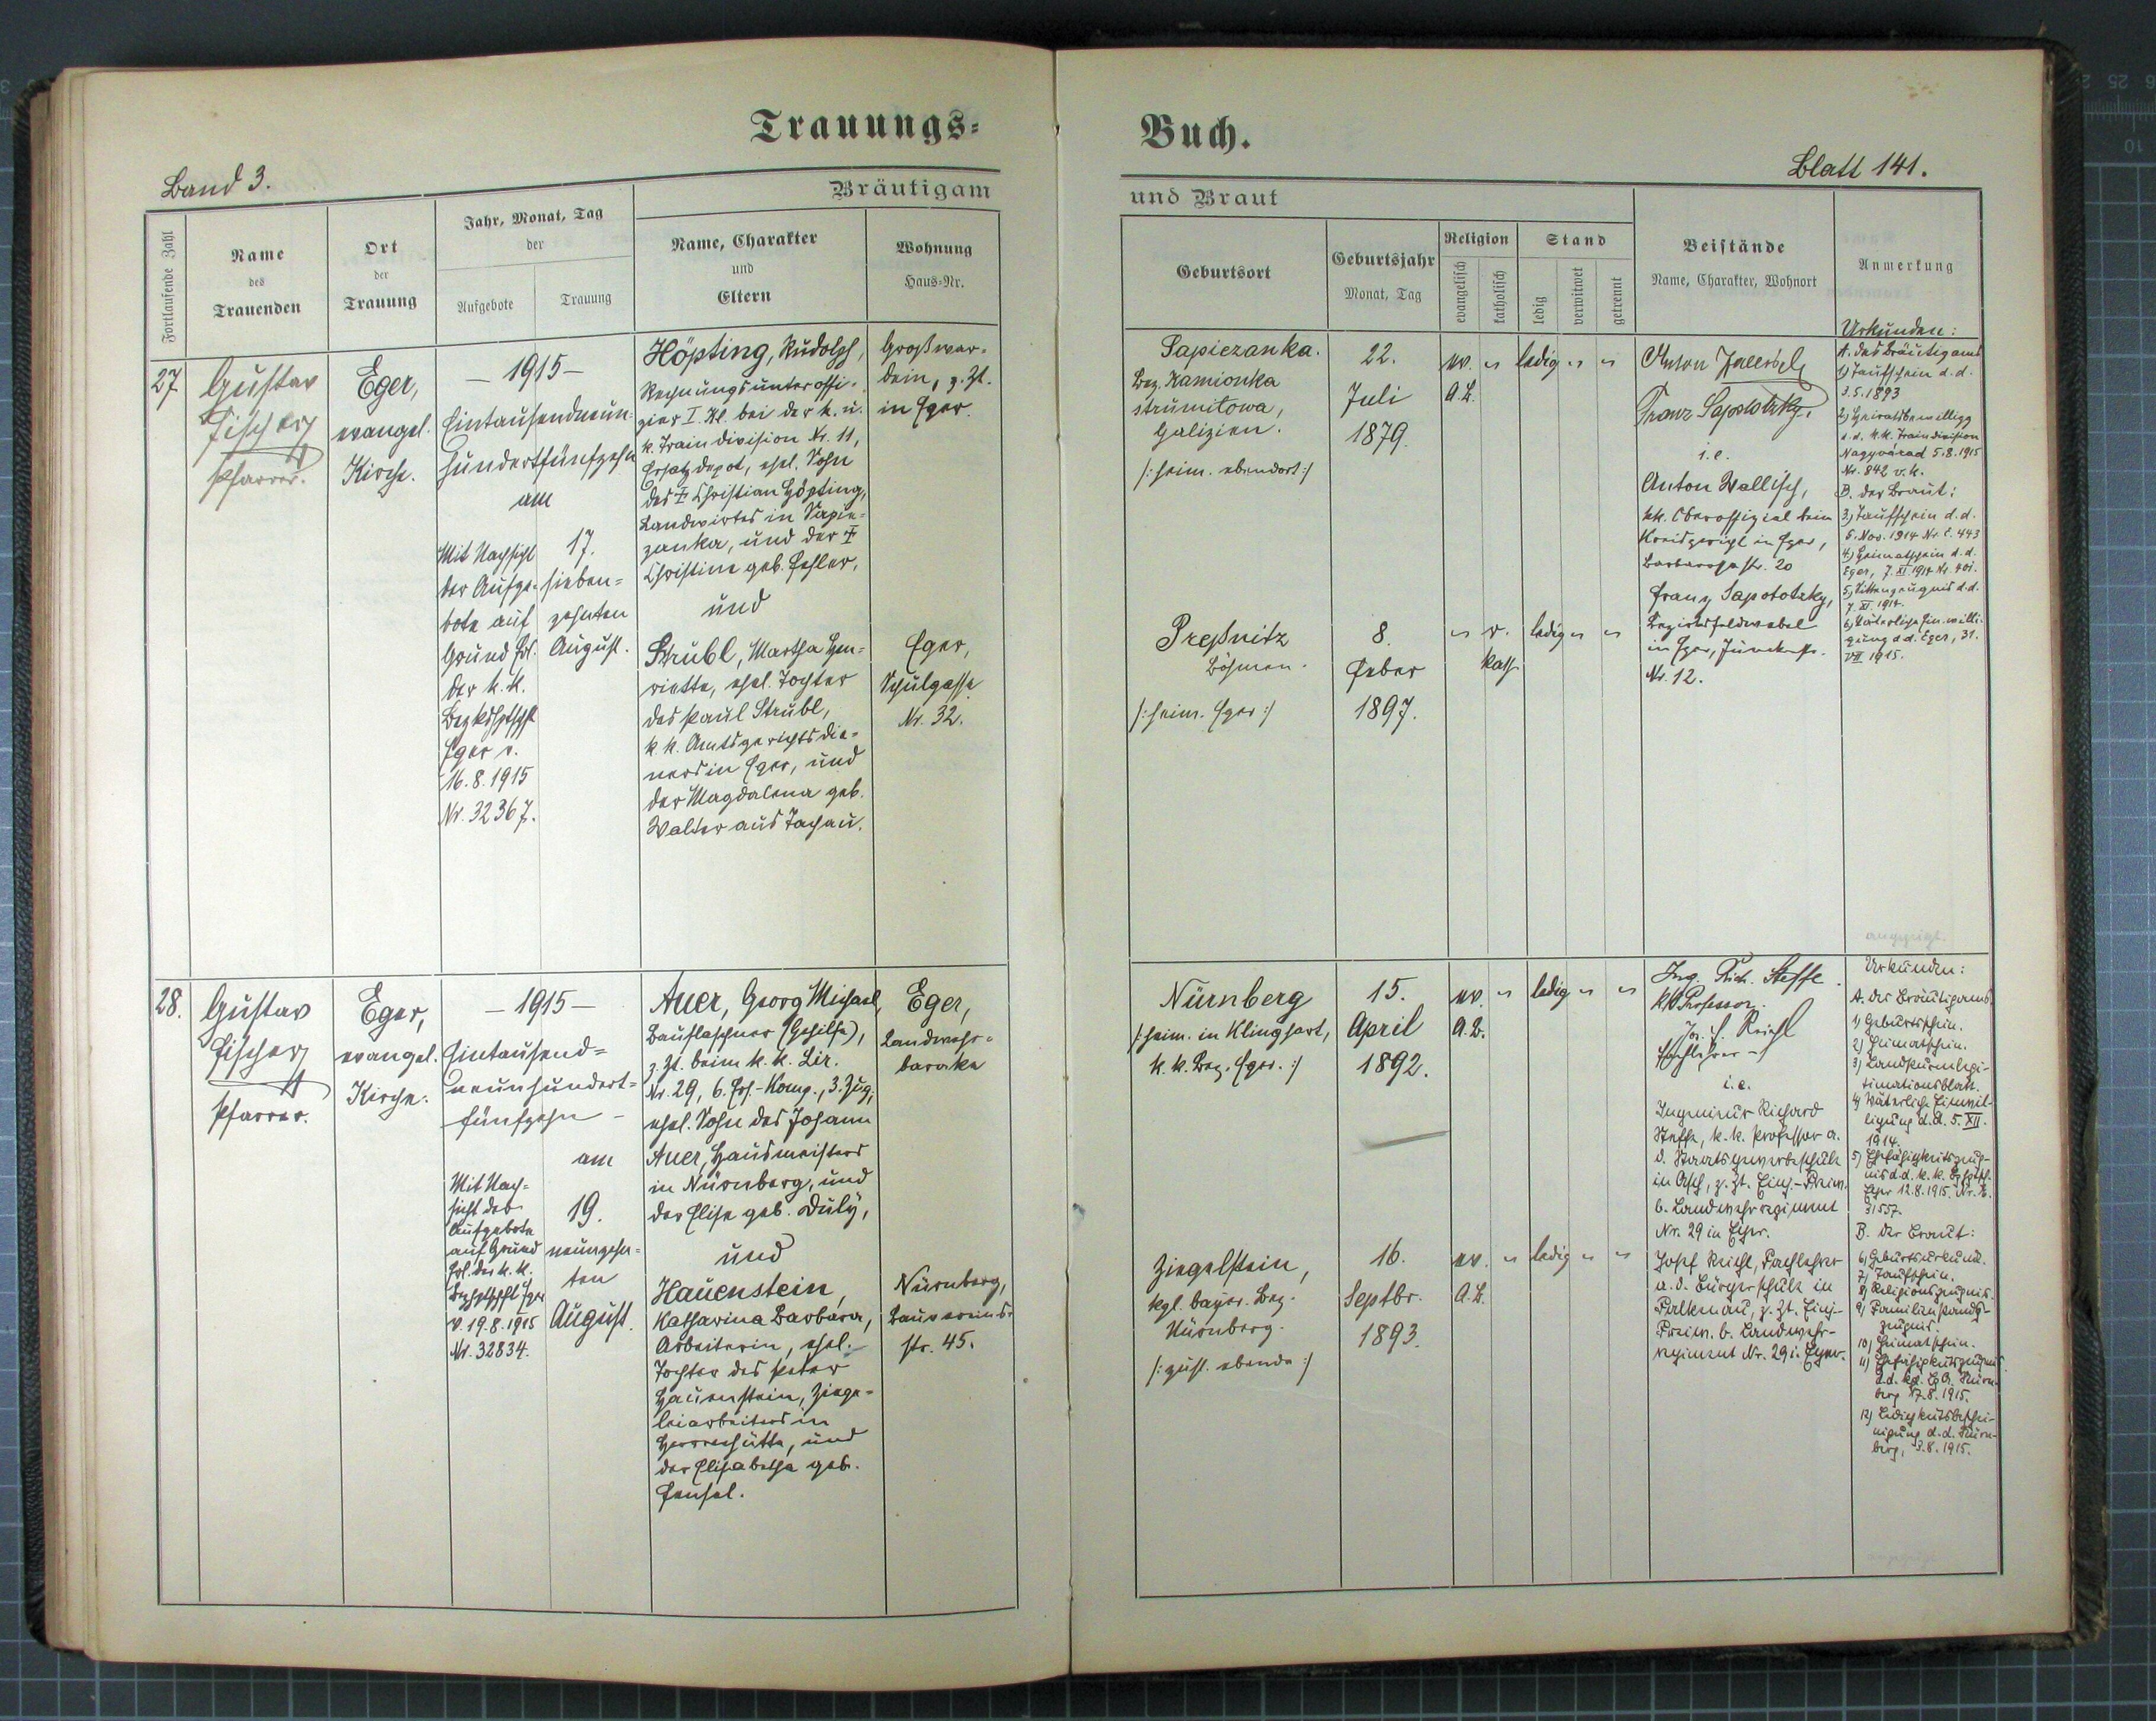 Trauungs=
Buch.
Band 3.
Blatt 141.
Bräutigam
und Braut
Fortlaufende Zahl
Name
des
Trauenden
Ort
der
Trauung
Jahr, Monat, Tag
der
Aufgebote
Trauung
Name, Charakter
und
Eltern
Wohnung
Haus-Nr.
Geburtsort
Geburtsjahr
Monat, Tag
Religion
evangelisch
katholisch
Stand
ledig
verwitwet
getrennt
Beistände
Name, Charakter, Wohnort
Anmerkung
27.
Gustav
Fischer
Pfarrer.
Eger,
evangel.
Kirche.
— 1915 —
Eintausendneun-
hundertfünfzehn
am
Mit Nachsicht
der Aufge-
bote auf
Grund Erl.
der k.k.
Bezkshptschft
Eger v.
16.8.1915
Nr. 32367.
17.
sieben=
zehnten
August.
Höpting, Rudolph,
Rechnungsunteroffi-
zier I. Kl. bei der k. u.
k. Traindivision Nr. 11,
Ersatzdepot, ehel. Sohn
des ☩ Christian Höpting,
Landwirtes in Sapie-
zanka, und der ☩
Christine geb. Ehler,
und
Strubl, Martha Hen-
riette, ehel. Tochter
des Paul Strubl,
k.k. Amtsgerichtsdie-
ners in Eger, und
der Magdalena geb.
Walter aus Tachau.
Großwar-
dein, z. Zt.
in Eger.
Eger,
Schulgasse
Nr. 32.
Sapiezanka.
Bez. Kamionka
strumitowa,
Galizien.
/: heim. ebendort :/
22.
Juli
1879.
ev. " ledig " "
A.B.
Preßnitz
Böhmen.
/: heim. Eger :/
8.
Feber
1897.
" r. ledig " "
kath.
Anton
Franz Sapototzky.
i.e.
Anton Wallisch,
kk. Oberoffizial beim
Kreisgericht in Eger,
Barbarossastr. 20
Franz Sapototzky,
Bezirksfeldwebel
in Eger,
Nr. 12.
Urkunden:
A. des Bräutigams
1) Taufschein d.d.
3.5.1893
2) Heiratsbewilligg
d.d. k.k. Traindivision
Nagyvárad 5.8.1915
Nr. 842 v.k.
B. der Braut:
3) Taufschein d.d.
5. Nov. 1914 Nr. E. 443
4) Heimatschein d.d.
Eger, 7. XI 1914 Nr. 401.
5) Sittenzeugnis d.d.
7. XI. 1914.
6) Väterliche Einwilli-
gung d.d. Eger, 31.
VII 1915.
28.
Gustav
Fischer
Pfarrer.
Eger,
evangel.
Kirche.
— 1915 —
Eintausend=
neunhundert=
fünfzehn —
am
Mit Nach-
sicht des
Aufgebote
auf Grund
Erl. der k.k.
Bezhptschft Eger
v. 19.8.1915
Nr. 32834.
19.
neunzehn=
ten
August.
Auer, Georg Michael,
Bauflaschner (Gehilfe),
z. Zt. beim k.k. L.i.r.
Nr. 29, 6. Ers.-Komp., 3. Zug,
ehel. Sohn des Johann
Auer, Hausmeisters
in Nürnberg, und
der Elise geb. Duly,
und
Hauenstein,
Katharina Barbara,
Arbeiterin, ehel.
Tochter des Peter
Hauenstein, Ziege-
leiarbeiters in
Herrnhütte, und
der Elisabetha geb.
Hensel.
Eger,
Landwehr-
baracke
Nürnberg,
Bauvereins-
str. 45.
Nürnberg
/: heim. in Klinghart,
k.k. Bez. Eger. :/
15.
April
1892.
ev. " ledig " "
A.B.
Ziegelstein,
kgl. bayer. Bez.
Nürnberg.
/: zust. ebenda :/
16.
Septbr.
1893.
ev. " ledig " "
A.B.
Ing. Rich. Steffe.
k.k. Professor.
Jos. Reichl
Fachlehrer
i.e.
Ingenieur Richard
Steffe, k.k. Professor a.
d. Staatsgewerbeschule
in Asch, z. Zt. Einj.-Freiw.
b. Landwehrregiment
Nr. 29 in Eger.
Josef Reichl, Fachlehrer
a.d. Bürgerschule in
Falkenau, z. Zt. Einj-
Freiw. b. Landwehr-
regiment Nr. 29 i. Eger.
Urkunden:
A. des Bräutigams
1) Geburtsschein.
2) Heimatschein.
3) Landsturmlegi-
timationsblatt.
4) Väterliche Einwil-
ligung d.d. 5. XII.
1914.
5) Ehefähigkeitszeug-
nis d.d. k.k. Bzhptsch.
Eger 12.8.1915. Nr. E.
31557.
B. der Braut:
6) Geburtsurkunde.
7) Taufschein.
8) Religionszeugnis.
9) Familienstands-
zeugnis.
10) Heimatschein.
11) Ehefähigkeitszeugnis
d.d. kgl. B.A. Nürn-
berg 17.8.1915.
12) Ledigkeitsbeschei-
nigung d.d. Nürn-
berg, 3.8.1915.